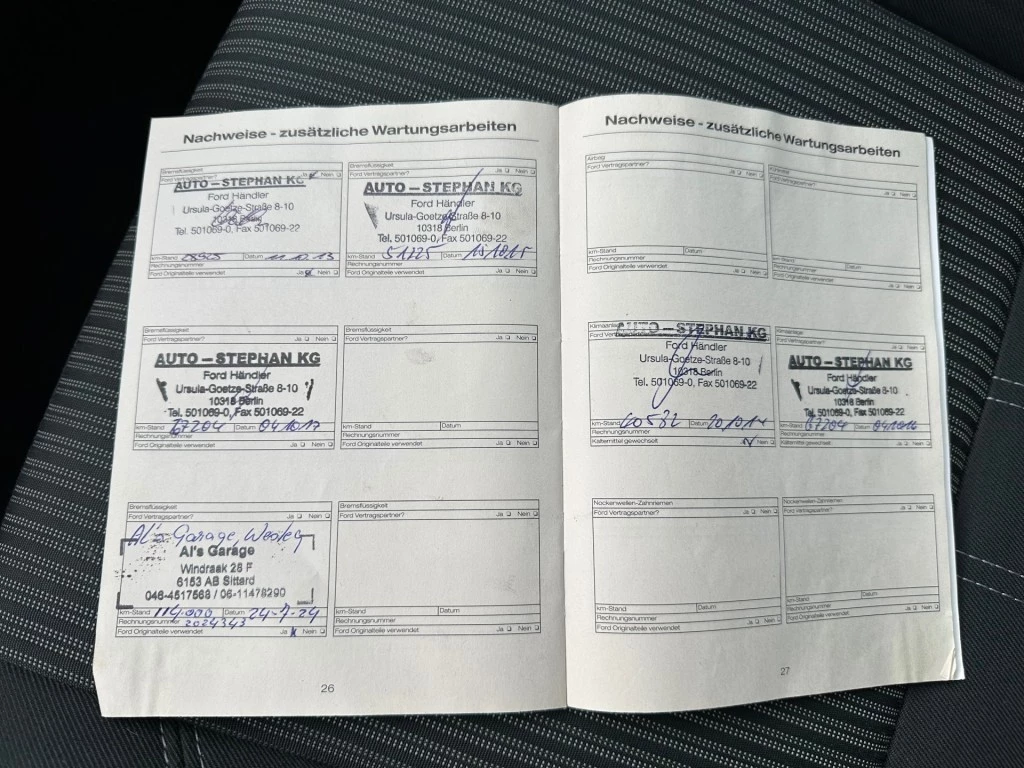 Nachweise - zusätzliche Wartungsarbeiten
Bremsflüssigkeit
Ford Vertragspartner? Ja Nein
AUTO – STEPHAN KG
Ford Händler
Ursula-Goetze-Straße 8-10
10318 Berlin
Tel. 501069-0, Fax 501069-22
km-Stand Datum 11.10.13
Rechnungsnummer
Ford Originalteile verwendet Ja Nein
Bremsflüssigkeit
Ford Vertragspartner? Ja Nein
AUTO – STEPHAN KG
Ford Händler
Ursula-Goetze-Straße 8-10
10318 Berlin
Tel. 501069-0, Fax 501069-22
km-Stand 51725 Datum 15.10.15
Rechnungsnummer
Ford Originalteile verwendet Ja Nein
Bremsflüssigkeit
Ford Vertragspartner? Ja Nein
AUTO – STEPHAN KG
Ford Händler
Ursula-Goetze-Straße 8-10
10318 Berlin
Tel. 501069-0, Fax 501069-22
km-Stand 67204 Datum 04.10.17
Rechnungsnummer
Ford Originalteile verwendet Ja Nein
Bremsflüssigkeit
Ford Vertragspartner? Ja Nein
km-Stand Datum
Rechnungsnummer
Ford Originalteile verwendet Ja Nein
Bremsflüssigkeit
Ford Vertragspartner? Ja Nein
Al's Garage, Wesley
Al's Garage
Windraak 28 F
6153 AB Sittard
046-4517568 / 06-11478290
km-Stand 114.000 Datum 24-7-24
Rechnungsnummer 2024343
Ford Originalteile verwendet Ja Nein
Bremsflüssigkeit
Ford Vertragspartner? Ja Nein
km-Stand Datum
Rechnungsnummer
Ford Originalteile verwendet Ja Nein
26
Nachweise - zusätzliche Wartungsarbeiten
Airbag
Ford Vertragspartner? Ja Nein
km-Stand Datum
Rechnungsnummer
Ford Originalteile verwendet Ja Nein
Ford Vertragspartner? Ja Nein
km-Stand Datum
Rechnungsnummer
Ford Originalteile verwendet Ja Nein
Klimaanlage
AUTO – STEPHAN KG
Ford Händler
Ursula-Goetze-Straße 8-10
10318 Berlin
Tel. 501069-0, Fax 501069-22
km-Stand 40532 Datum 20.10.14
Rechnungsnummer
Kältemittel gewechselt Nein
Klimaanlage
Ford Vertragspartner? Ja Nein
AUTO – STEPHAN KG
Ford Händler
Ursula-Goetze-Straße 8-10
10318 Berlin
Tel. 501069-0, Fax 501069-22
km-Stand 67204 Datum
Rechnungsnummer
Kältemittel gewechselt Ja Nein
Nockenwellen-Zahnriemen
Ford Vertragspartner? Ja Nein
km-Stand Datum
Rechnungsnummer
Ford Originalteile verwendet Ja Nein
Nockenwellen-Zahnriemen
Ford Vertragspartner? Ja Nein
km-Stand Datum
Rechnungsnummer
Ford Originalteile verwendet Ja Nein
27